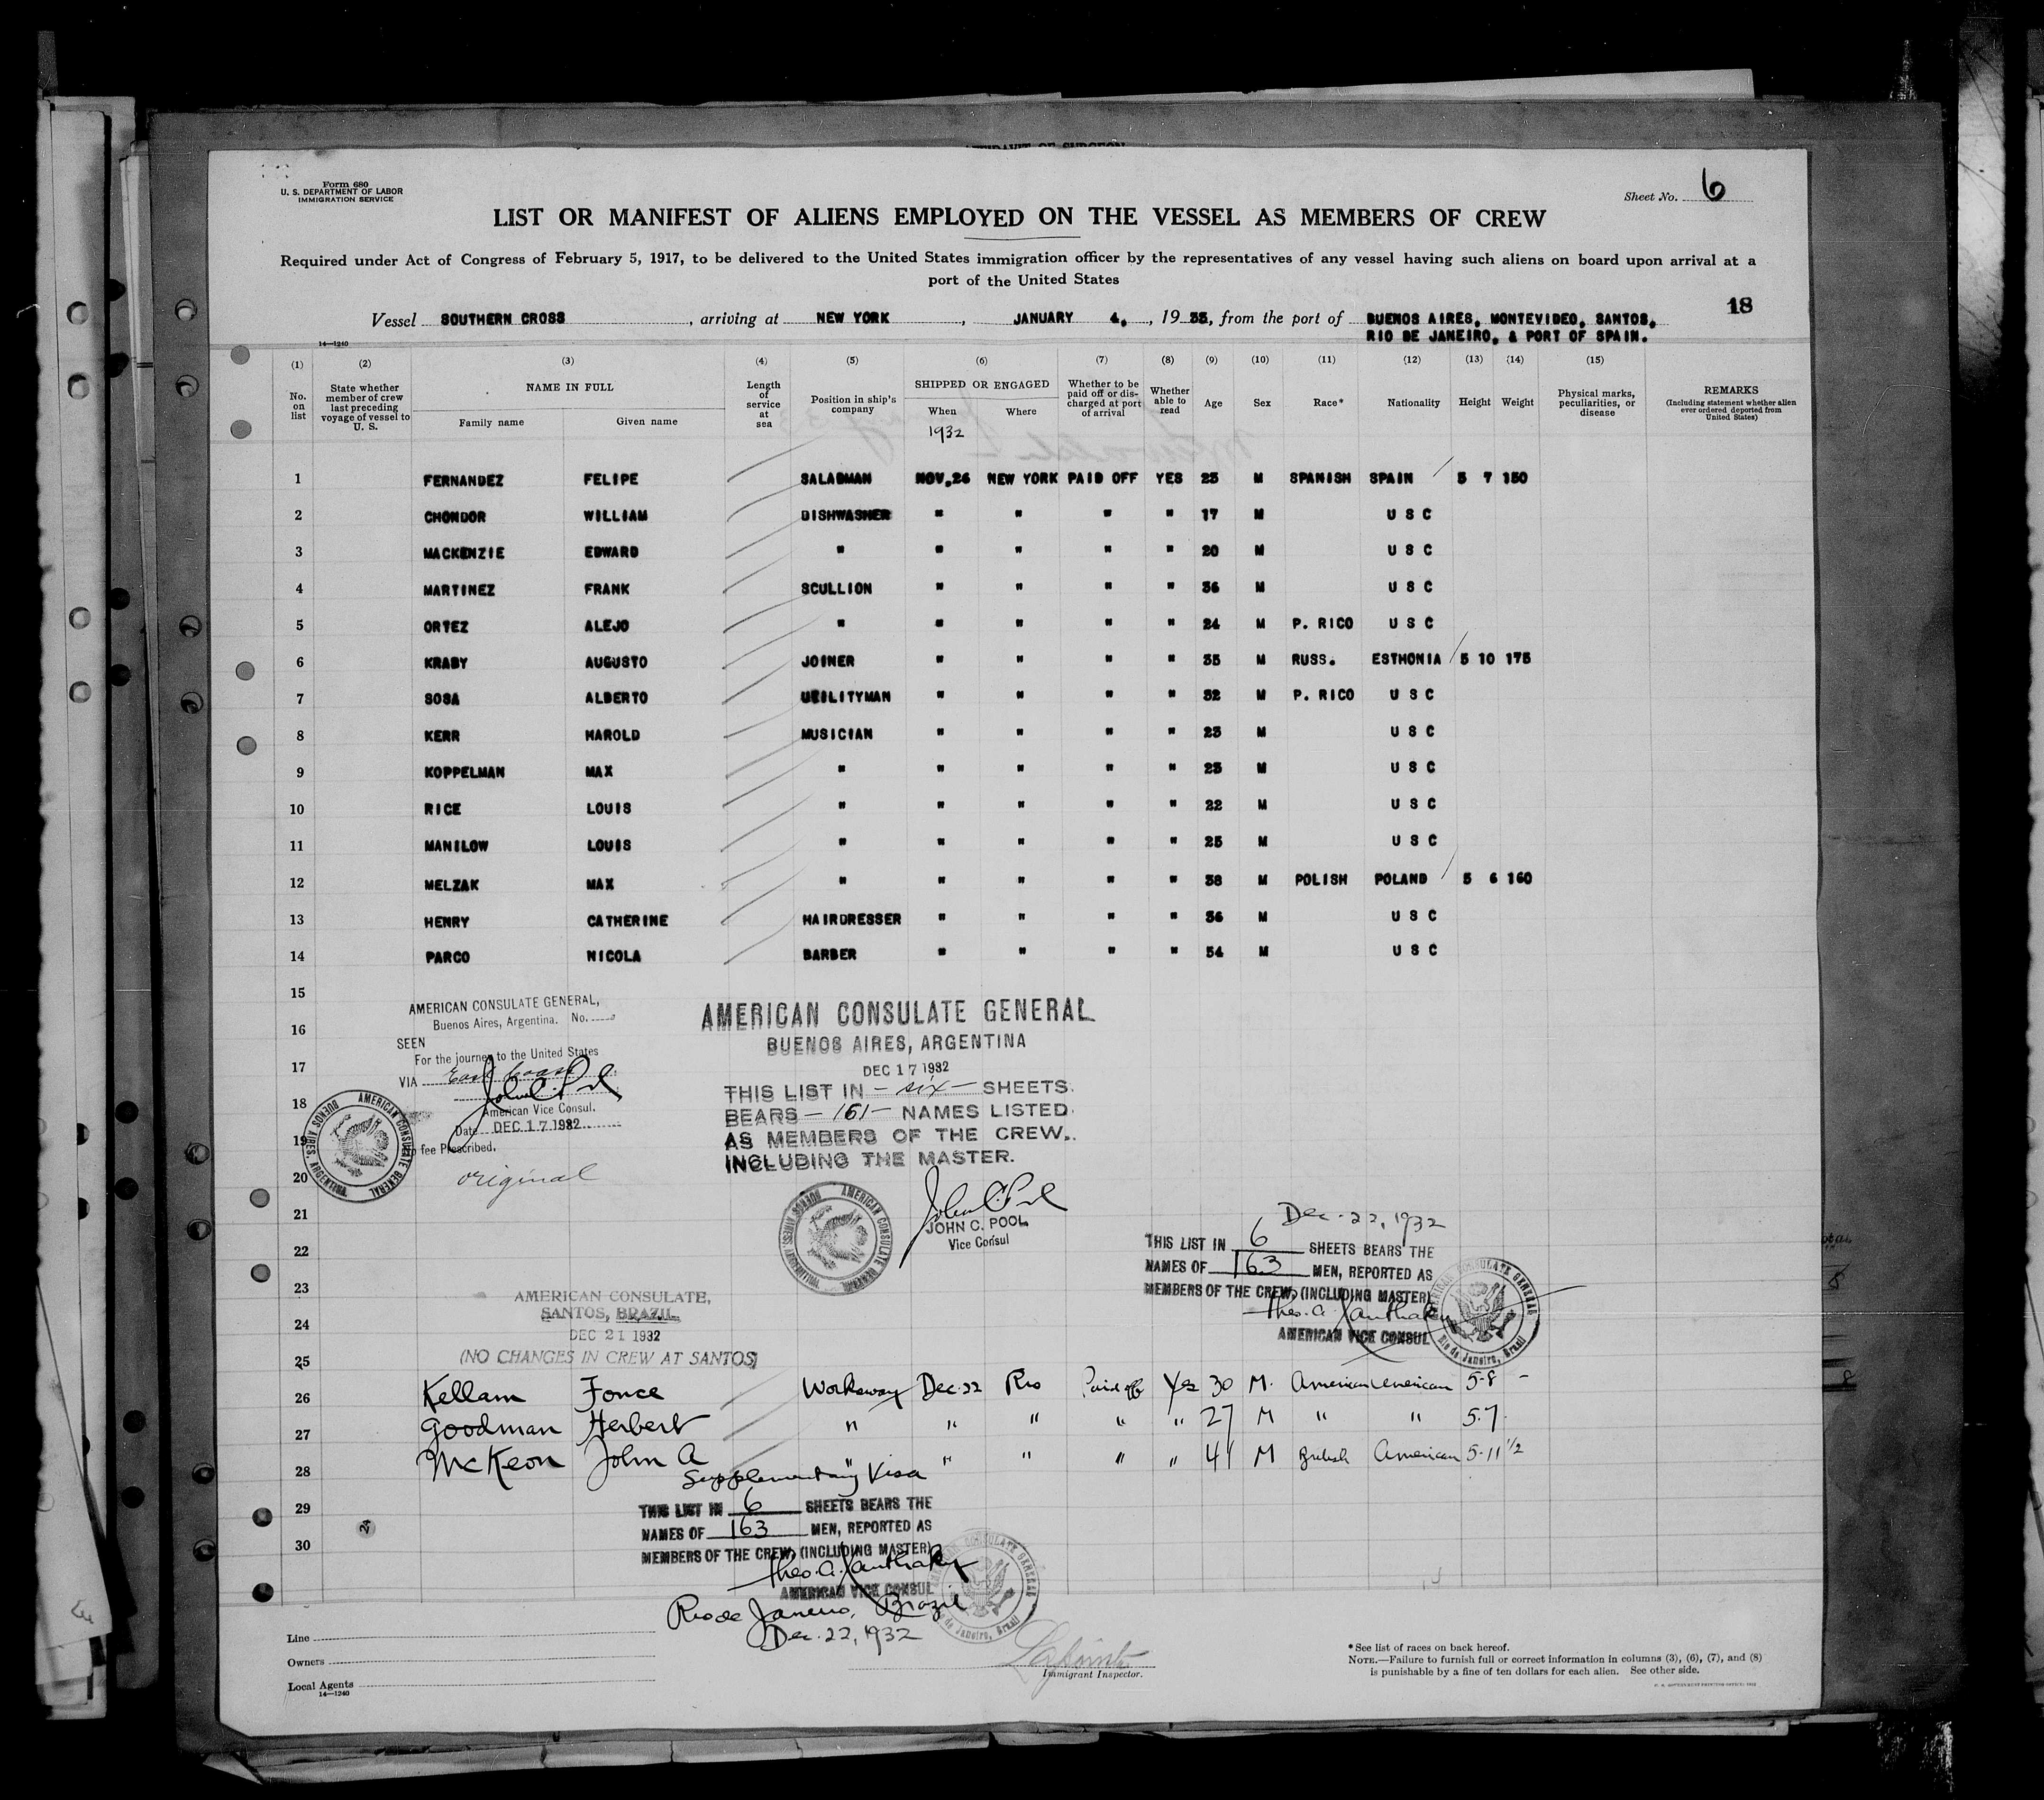 Form 680
U. S. DEPARTMENT OF LABOR
IMMIGRATION SERVICE
Sheet No. 6
LIST OR MANIFEST OF ALIENS EMPLOYED ON THE VESSEL AS MEMBERS OF CREW
Required under Act of Congress of February 5, 1917, to be delivered to the United States immigration officer by the representatives of any vessel having such aliens on board upon arrival at a
port of the United States
18
Vessel SOUTHERN CROSS, arriving at NEW YORK, JANUARY 4, 1933, from the port of BUENOS AIRES, MONTEVIDEO, SANTOS,
RIO DE JANEIRO, & PORT OF SPAIN.
14—1240
(1) (2) (3) (4) (5) (6) (7) (8) (9) (10) (11) (12) (13) (14) (15)
No. on list
State whether member of crew last preceding voyage of vessel to U. S.
NAME IN FULL
Family name Given name
Length of service at sea
Position in ship's company
SHIPPED OR ENGAGED
When Where
1932
Whether to be paid off or discharged at port of arrival
Whether able to read
Age Sex Race* Nationality Height Weight
Physical marks, peculiarities, or disease
REMARKS
(Including statement whether alien ever ordered deported from United States)
1 FERNANDEZ FELIPE SALADMAN NOV,26 NEW YORK PAID OFF YES 25 M SPANISH SPAIN 5 7 150
2 CHONDOR WILLIAM DISHWASHER " " " " 17 M U S C
3 MACKENZIE EDWARD " " " " " 20 M U S C
4 MARTINEZ FRANK SCULLION " " " " 36 M U S C
5 ORTEZ ALEJO " " " " " 24 M P. RICO U S C
6 KRABY AUGUSTO JOINER " " " " 35 M RUSS. ESTHONIA 5 10 175
7 SOSA ALBERTO UTILITYMAN " " " " 32 M P. RICO U S C
8 KERR HAROLD MUSICIAN " " " " 23 M U S C
9 KOPPELMAN MAX " " " " " 23 M U S C
10 RICE LOUIS " " " " " 22 M U S C
11 MANILOW LOUIS " " " " " 25 M U S C
12 MELZAK MAX " " " " " 38 M POLISH POLAND 5 6 160
13 HENRY CATHERINE HAIRDRESSER " " " " 36 M U S C
14 PARCO NICOLA BARBER " " " " 54 M U S C
15
16
17
18
19
20
21
22
23
24
25
AMERICAN CONSULATE GENERAL,
Buenos Aires, Argentina. No.
SEEN
For the journey to the United States
VIA East Coast
John C. Pool
American Vice Consul.
Date DEC 17 1932
No fee Prescribed.
AMERICAN CONSULATE GENERAL
BUENOS AIRES, ARGENTINA
original
AMERICAN CONSULATE GENERAL
BUENOS AIRES, ARGENTINA
DEC 17 1932
THIS LIST IN - six - SHEETS
BEARS - 161 - NAMES LISTED
AS MEMBERS OF THE CREW,
INCLUDING THE MASTER.
John C. Pool
JOHN C. POOL
Vice Consul
AMERICAN CONSULATE GENERAL
BUENOS AIRES, ARGENTINA
Dec. 22, 1932
THIS LIST IN 6 SHEETS BEARS THE
NAMES OF 163 MEN, REPORTED AS
MEMBERS OF THE CREW, (INCLUDING MASTER)
Theo. A. Xanthaky
AMERICAN VICE CONSUL
AMERICAN CONSULATE GENERAL
Rio de Janeiro, Brasil
AMERICAN CONSULATE,
SANTOS, BRAZIL.
DEC 21 1932
(NO CHANGES IN CREW AT SANTOS)
26 Kellam Fonce Workaway Dec. 22 Rio Paid off Yes 30 M. American American 5-8 -
27 Goodman Herbert " " " " " 27 M " " 5-7
28 McKeon John A " " " " " 41 M British American 5-11 1/2
29
30
Supplementary Visa
THIS LIST IN 6 SHEETS BEARS THE
NAMES OF 163 MEN, REPORTED AS
MEMBERS OF THE CREW, (INCLUDING MASTER)
Theo. A. Xanthaky
AMERICAN VICE CONSUL
Rio de Janeiro, Brazil
Dec. 22, 1932
AMERICAN CONSULATE GENERAL
Rio de Janeiro, Brasil
24
Line
Owners
Local Agents
14—1240
Immigrant Inspector.
*See list of races on back hereof.
NOTE.—Failure to furnish full or correct information in columns (3), (6), (7), and (8)
is punishable by a fine of ten dollars for each alien. See other side.